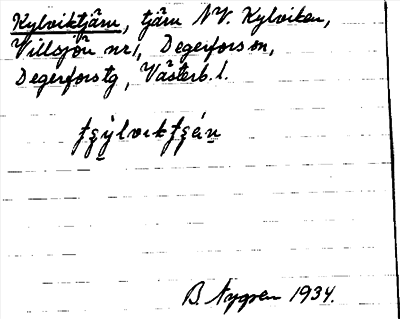 Kylviktjärn, tjärn NV. Kylviken,
Villsjön nr 1, Degerfors sn,
Degerfors tg, Västerb. l.
B. Nygren 1934.